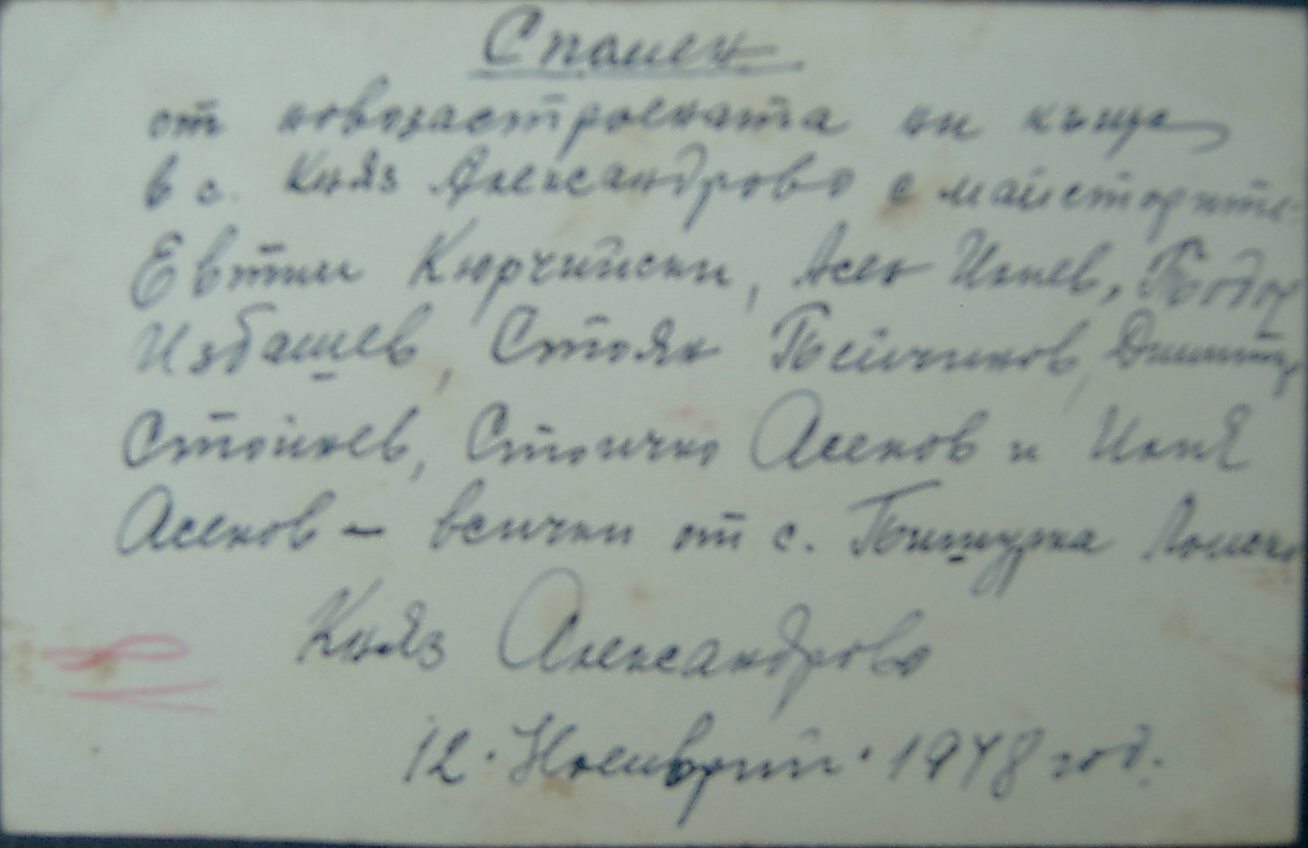 Спомен
от новозастроената ни къща
в с. Княз Александрово с майсторите
Евтим Кюрчийски, Асен Илиев, Тодор
Избашев, Стоян Пейчинов, Димитър
Стойнев, Стоичко Асенов и Илия
Асенов – всички от с. Пишурка Ломско
Княз Александрово
12. Ноемврий. 1948 год.